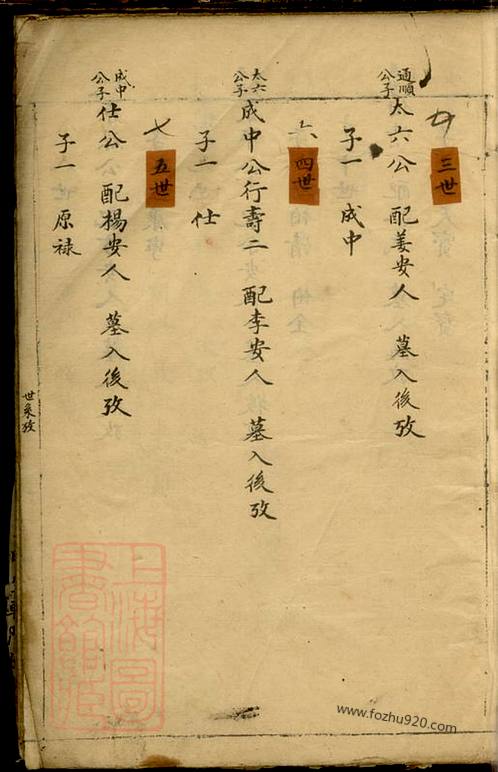 三世
通順公子 太六公 配姜安人 墓入後攷
子一 成中
六
四世
太六公子 成中公行壽二 配李安人 墓入後攷
子一 仕
七
五世
成中公子 仕公 配楊安人 墓入後攷
子一 原禄
世系攷
上海圖書館藏
www.fozhu920.com